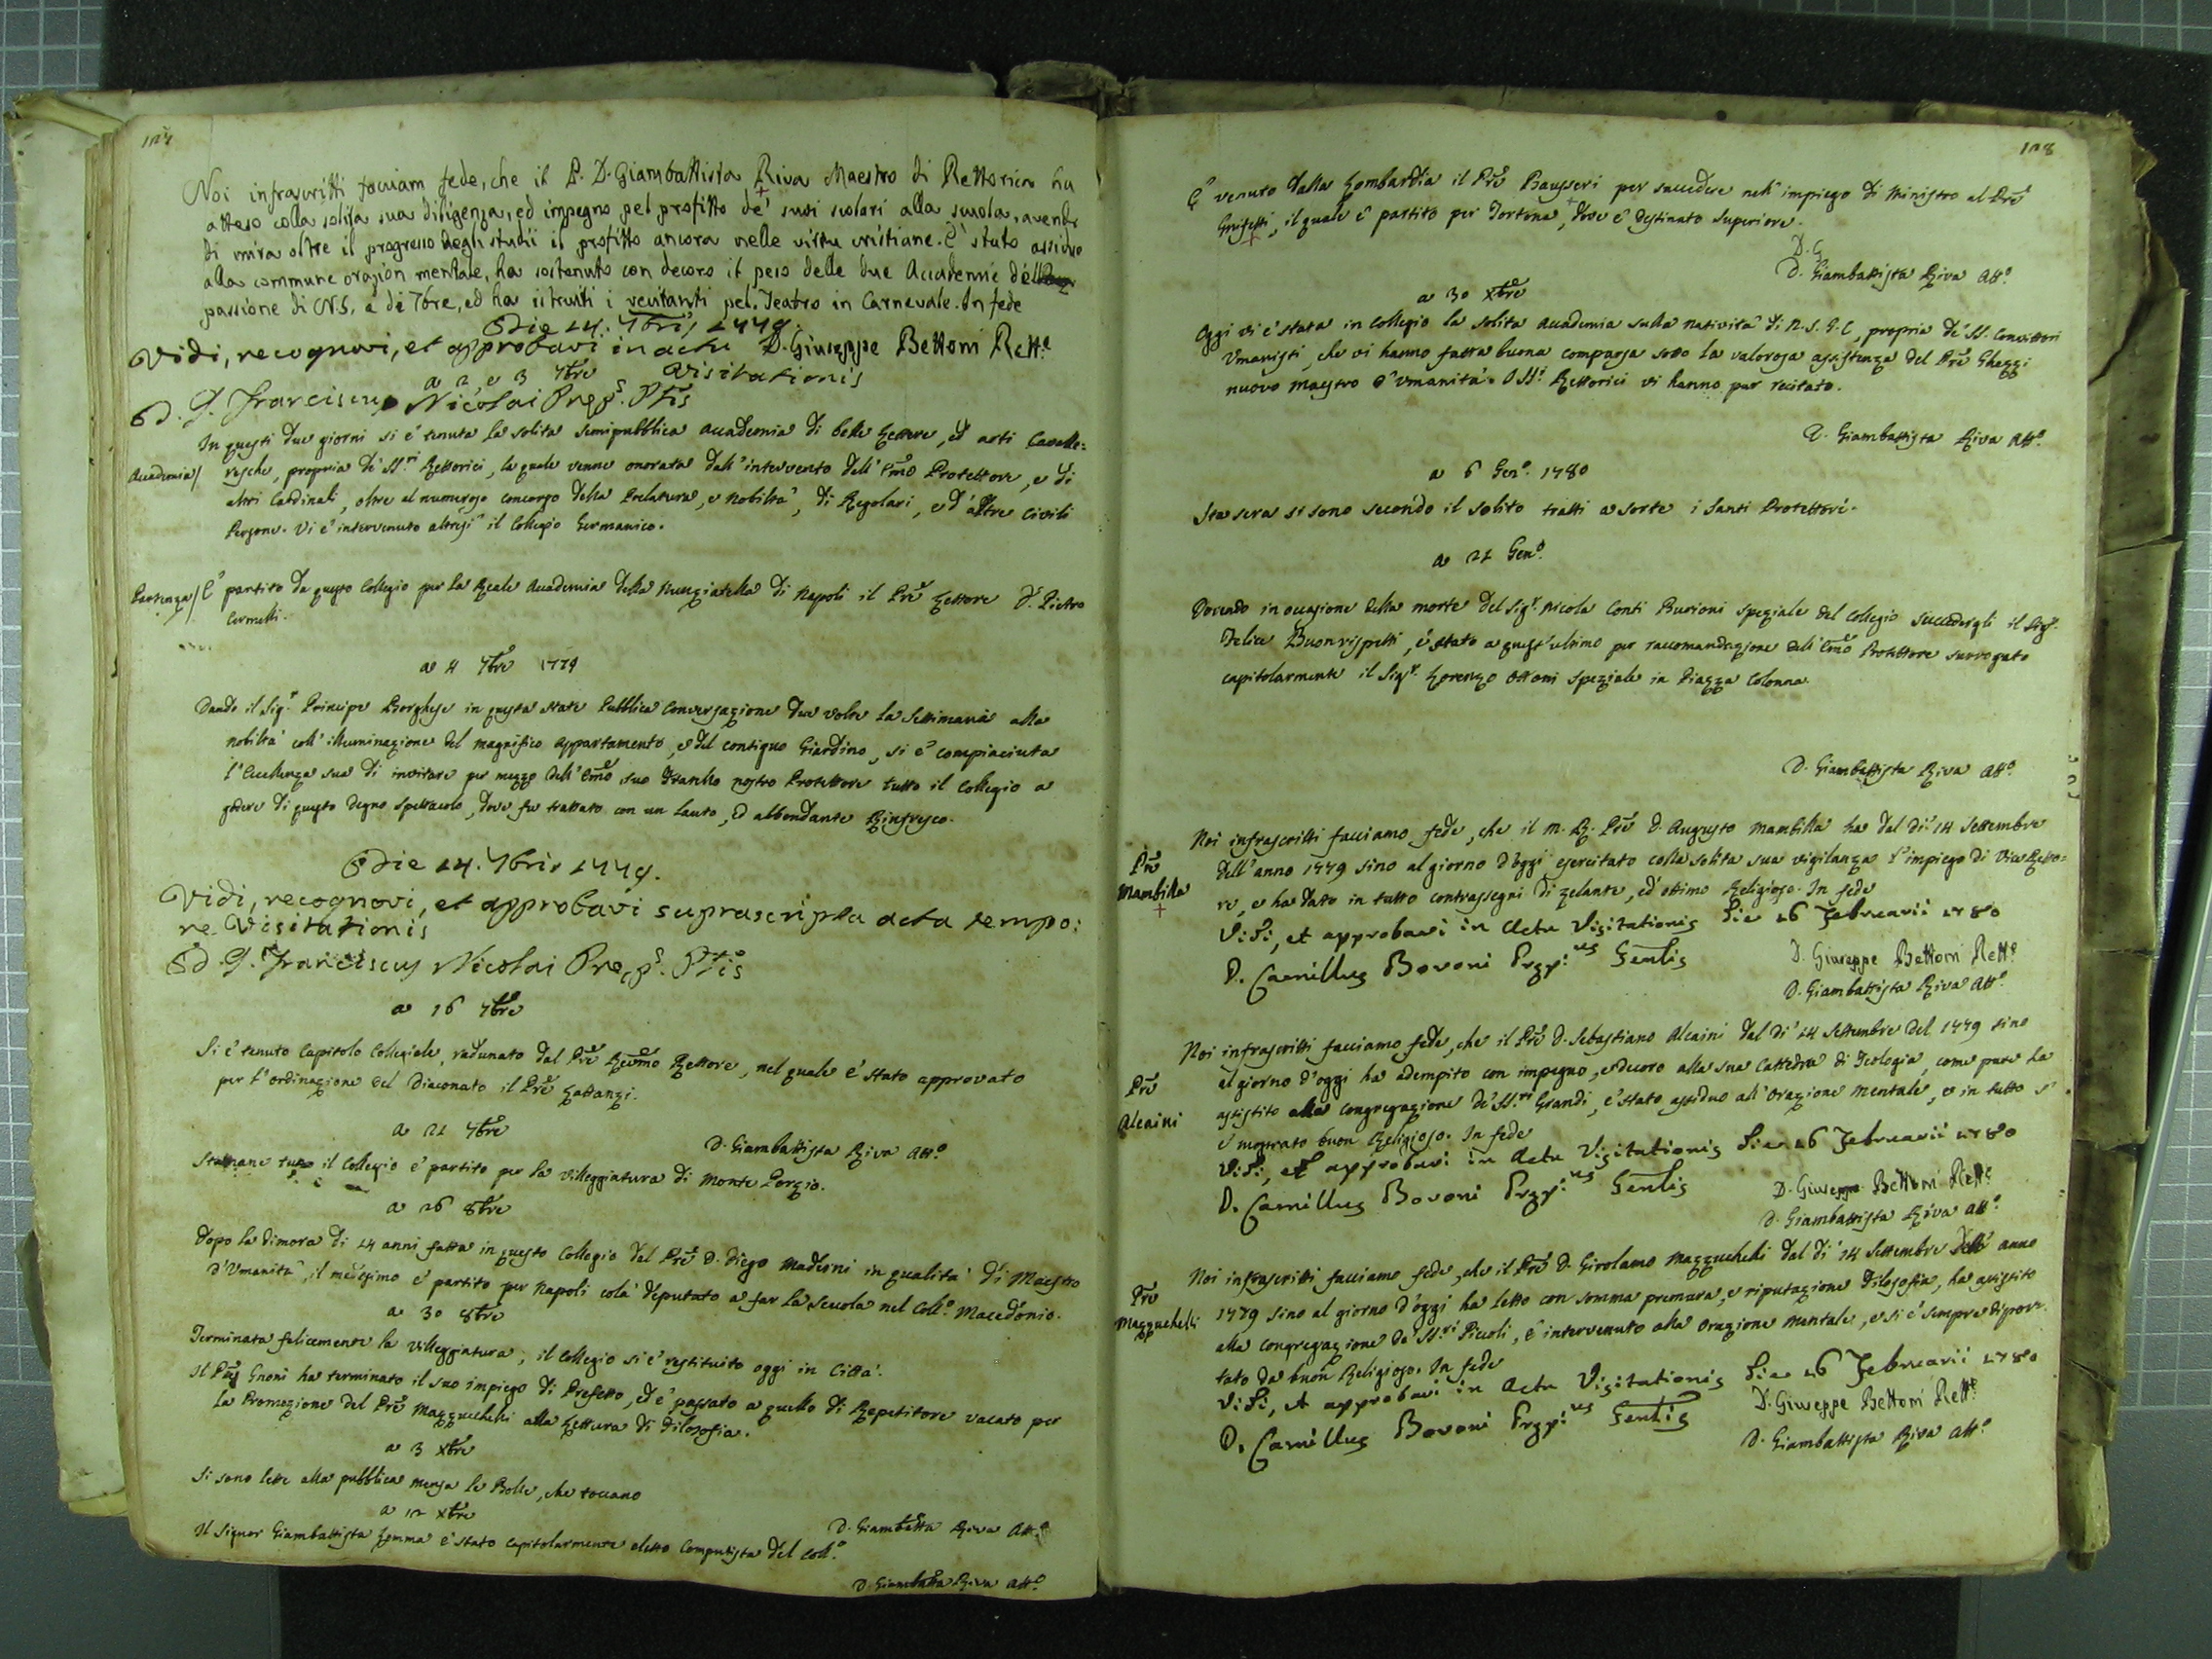 127
Noi infrascritti facciam fede, che il P. D. Giambattista Riva Maestro di Rettorica ha
atteso colla solita sua diligenza, ed impegno pel profitto de' suoi scolari alla scuola, avendo
di mira oltre il progresso degli studii il profitto ancora nelle virtu cristiane. E' stato assiduo
alla commune orazion mentale, ha sostenuto con decoro il peso delle due Accademie della
passione di N.S. e di 7bre, ed ha istruiti i recitanti pel Teatro in Carnevale. In fede
Die 14. 7bris 1779.
Vidi, recognovi, et approbavi in actu D. Giuseppe Bettoni Rett.e
Visitationis
a 2, e 3 7bre
D. J. Franciscus Nicolai Prep.s Plis
In questi due giorni si è tenuta la solita semipubblica Accademia di belle Lettere, ed arti Cavalle:
Accademia/ resche, propria de' SS.ri Rettorici, la quale venne onorata dall'intervento dell'Emo Protettore, e di
altri Cardinali, oltre al numeroso concorso della Prelatura, e Nobiltà, di Regolari, e d'altre Civili
Persone. Vi è intervenuto altresì il Collegio Germanico.
Partenza/ E' partito da questo Collegio per la Reale Accademia della Nunziatella di Napoli il Pre Lettore D. Pietro
Cermelli.
a 4 7bre 1779
Dando il Sig.r Principe Borghese in questa state Pubblica Conversazione due volte la Settimana alla
Nobiltà coll'illuminazione del magnifico appartamento, e del contiguo Giardino, si è compiaciuta
l'Eccellenza sua di invitare per mezzo dell'Emo suo Fratello nostro Protettore tutto il Collegio a
godere di questo degno spettacolo, dove fu trattato con un lauto, ed abbondante Rinfresco.
Die 14. 7bris 1779.
Vidi, recognovi, et approbavi suprascripta acta tempo:
re Visitationis
D. J. Franciscus Nicolai Prep.s Plis
a 16 7bre
Si è tenuto Capitolo Collegiale, radunato dal Pre Revmo Rettore, nel quale è stato approvato
per l'ordinazione del Diaconato il Pre Gattanzi.
a 21 7bre
D. Giambattista Riva Att.o
Stamane tutto il Collegio è partito per la Villeggiatura di Monte Porzio.
a 26 8bre
Dopo la dimora di 14 anni fatta in questo Collegio dal Pre D. Diego Maderni in qualità di Maestro
d'Umanità, il medesimo è partito per Napoli colà deputato a far la scuola nel Coll.o Macedonio.
a 30 8bre
Terminata felicemente la Villeggiatura, il Collegio si è restituito oggi in Città.
Il Pre Gnoni ha terminato il suo impiego di Prefetto, ed è passato a quello di Repetitore vacato per
la Promozione del Pre Mazzucchelli alla Lettura di Filosofia.
a 3 Xbre
Si sono lette alla pubblica mensa le Bolle, che toccano
a 12 Xbre
D. Giambatta Riva Att.o
Il Signor Giambattista Lemma è stato capitolarmente eletto Computista del Coll.o
D. Giambatta Riva Att.o
128
E' venuto dalla Lombardia il Pre Bausseri per succedere nell'impiego di Ministro al Pre
Grisetti, il quale è partito per Tortona, dove è destinato Superiore.
D. G
D. Giambattista Riva Att.o
a 30 Xbre
Oggi vi è stata in Collegio la solita Accademia sulla Natività di N. S. G. C, propria de' SS. Convittori
Umanisti, che vi hanno fatta buona comparsa sotto la valorosa assistenza del Pre Ghezzi
nuovo Maestro d'Umanità. I SS.i Rettorici vi hanno pur recitato.
D. Giambattista Riva Att.o
a 6 Gen.o 1780
Sta sera si sono secondo il solito tratti a sorte i Santi Protettori.
a 21 Gen.o
Dovendo in occasione della morte del Sig.r Nicola Conti Burioni speziale del Collegio succedergli il Sig.r
Felice Buonrispetti, è stato a quest'ultimo per raccomandazione dell'Emo Protettore surrogato
capitolarmente il Sig.r Lorenzo Ottoni speziale in Piazza Colonna
D. Giambattista Riva Att.o
Noi infrascritti facciamo fede, che il M. R. Pre D. Augusto Mambilla ha dal dì 14 Settembre
Pre
dell'anno 1779 sino al giorno d'oggi esercitato colla solita sua vigilanza l'impiego di Vice Retto=
Mambilla
re, e ha dato in tutto contrassegni di zelante, ed ottimo Religioso. In fede
Vidi, et approbavi in Actu Visitationis Die 26 Februarii 1780
D. Camillus Bovoni Prep.us Genlis
D. Giuseppe Bettoni Rett.e
D. Giambattista Riva Att.o
Noi infrascritti facciamo fede, che il Pre D. Sebastiano Alcaini dal dì 14 Settembre del 1779 sino
Pre
al giorno d'oggi ha adempito con impegno, e decoro alla sua Cattedra di Teologia, come pure ha
Alcaini
assistito alla Congregazione de' SS.ri Grandi, è stato assiduo all'Orazione Mentale, e in tutto s'
è mostrato buon Religioso. In fede
Vidi, et approbavi in Actu Visitationis Die 26 Februarii 1780
D. Camillus Bovoni Prep.us Genlis
D. Giuseppe Bettoni Rett.e
D. Giambattista Riva Att.o
Noi infrascritti facciamo fede, che il Pre D. Girolamo Mazzucchelli dal dì 14 Settembre dell'anno
Pre
1779 sino al giorno d'oggi ha letto con somma premura, e riputazione Filosofia, ha assistito
Mazzuchelli
alla congregazione de' SS.ri Piccoli, è intervenuto alla Orazione Mentale, e si è sempre diport.
tato da buon Religioso. In fede
Vidi, et approbavi in Actu Visitationis Die 26 Februarii 1780
D. Camillus Bovoni Prep.us Genlis
D. Giuseppe Bettoni Rett.e
D. Giambattista Riva Att.o